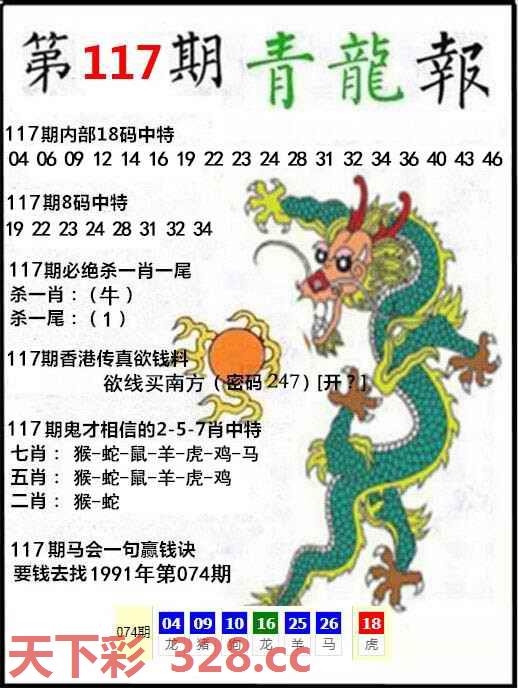 第117期青龍報
117期内部18码中特
04 06 09 12 14 16 19 22 23 24 28 31 32 34 36 40 43 46
117期8码中特
19 22 23 24 28 31 32 34
117期必绝杀一肖一尾
杀一肖：（牛）
杀一尾：（1）
117期香港传真欲钱料
欲线买南方（密码247）[开？]
117期鬼才相信的2-5-7肖中特
七肖： 猴-蛇-鼠-羊-虎-鸡-马
五肖： 猴-蛇-鼠-羊-虎-鸡
二肖： 猴-蛇
117期马会一句赢钱诀
要钱去找1991年第074期
074期 04 09 10 16 25 26 18
龙 猪 狗 龙 羊 马 虎
天下彩 328.cc